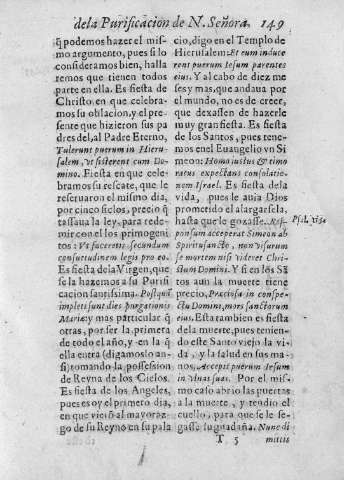 dela Purificacion de N. Señora. 149
q̃ podemos hazer el mis-
mo argumento, pues si lo
consideramos bien, halla
remos que tienen todos
parte en ella. Es fiesta de
Christo, en que celebra-
mos su oblacion, y el pre-
sente que hizieron sus pa
dres del, al Padre Eterno,
Tulerunt puerum in Hieru-
salem, vt sisterent eum Do-
mino. Fiesta en que cele-
bramos su rescate, que le
reseruaron el mismo dia,
por cinco siclos, precio q̃
tassaua la ley, para rede-
mir con el los primogeni
tos: Vt facerent secundum
consuetudinem legis pro eo.
Es fiesta de la Virgen, que
se la hazemos a su Purifi
cacion santissima. Postquã
impleti sunt dies purgationis
Mariæ; y mas particular q̃
otras, por ser la primera
de todo el año, y en la q̃
ella entra (digamoslo an-
si) tomando la possession
de Reyna de los Cielos.
Es fiesta de los Angeles,
pues oy es el primero dia,
en que vieron al mayoraz-
go de su Reyno en su pala
cio, digo en el Templo de
Hierusalem: Et cum induce
rent puerum Iesum parentes
eius. Y al cabo de diez me
ses y mas, que andaua por
el mundo, no es de creer,
que dexassen de hazerle
muy gran fiesta. Es fiesta
de los Santos, pues tene-
mos en el Euangelio vn Si
meon: Homo iustus & timo
ratus expectans consolatio-
nem Israel. Es fiesta de la
vida, pues le auia Dios
prometido el alargarsela,
hasta que le gozasse. Res-
ponsum acceperat Simeon ab
Spiritu sancto, non visurum
se mortem nisi videret Chri-
stum Domini. Y si en los Sã
tos aun la muerte tiene
precio, Præciosa in conspe-
ctu Domini, mors sanctorum
eius. Esta tambien es fiesta
de la muerte, pues tenien-
do este Santo viejo la vi-
da, y la salud en sus ma-
nos, Accepit puerum Iesum
in vlnas suas. Por el mis-
mo caso abrio las puertas
a la muerte, y tendio el
cuello, para que se le se-
gasse su guadaña. Nunc di
T 5 mittis